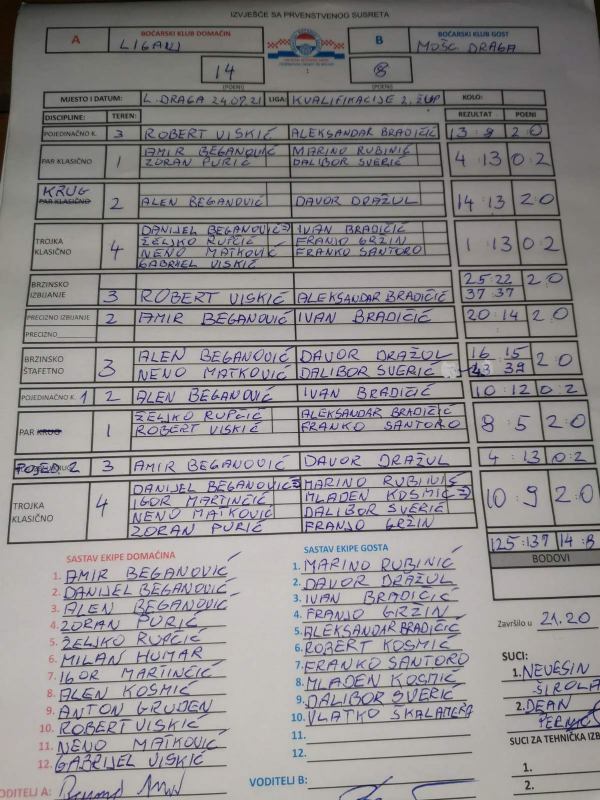 IZVJEŠĆE SA PRVENSTVENOG SUSRETA
A BOĆARSKI KLUB DOMAĆIN B BOĆARSKI KLUB GOST
LIGANJ MOŠĆ. DRAGA
14 8
(POENI) (POENI)
MJESTO I DATUM: L. DRAGA 24.09.21 LIGA: KVALIFIKACIJE 2. ŽUP KOLO:
DISCIPLINE: TEREN: REZULTAT POENI
POJEDINAČNO K. 3 ROBERT VISKIĆ ALEKSANDAR BRADIČIĆ 13 : 9 2:0
PAR KLASIČNO 1 AMIR BEGANOVIĆ MARINO RUBINIĆ 4 :13 0:2
ZORAN PURIĆ DALIBOR SVERIĆ
KRUG
PAR KLASIČNO 2 ALEN BEGANOVIĆ DAVOR DRAŽUL 14 :13 2:0
TROJKA KLASIČNO 4 DANIJEL BEGANOVIĆ IVAN BRADIČIĆ 1 :13 0:2
ŽELJKO RUPČIĆ FRANJO GRŽIN
NENO MATKOVIĆ FRANKO SANTORO
GABRIJEL VISKIĆ
BRZINSKO IZBIJANJE 3 ROBERT VISKIĆ ALEKSANDAR BRADIČIĆ 25:22 2:0
37 37
PRECIZNO IZBIJANJE 2 AMIR BEGANOVIĆ IVAN BRADIČIĆ 20 :14 2:0
PRECIZNO
BRZINSKO ŠTAFETNO 3 ALEN BEGANOVIĆ DAVOR DRAŽUL 16 : 15 2:0
NENO MATKOVIĆ DALIBOR SVERIĆ 43 39
POJEDINAČNO K. 1 2 ALEN BEGANOVIĆ IVAN BRADIČIĆ 10 :12 0:2
PAR KRUG 1 ŽELJKO RUPČIĆ ALEKSANDAR BRADIČIĆ 8 : 5 2:0
ROBERT VISKIĆ FRANKO SANTORO
POJED 2 3 AMIR BEGANOVIĆ DAVOR DRAŽUL 4 :13 0:2
TROJKA KLASIČNO 4 DANIJEL BEGANOVIĆ MARINO RUBINIĆ 10 : 9 2:0
IGOR MARTINČIĆ MLADEN KOSMIĆ
NENO MATKOVIĆ DALIBOR SVERIĆ
ZORAN PURIĆ FRANJO GRŽIN
125 :137 14 :8
BODOVI
SASTAV EKIPE DOMAĆINA SASTAV EKIPE GOSTA
1. AMIR BEGANOVIĆ 1. MARINO RUBINIĆ
2. DANIJEL BEGANOVIĆ 2. DAVOR DRAŽUL
3. ALEN BEGANOVIĆ 3. IVAN BRADIČIĆ
4. ZORAN PURIĆ 4. FRANJO GRZIN
5. ŽELJKO RUPČIĆ 5. ALEKSANDAR BRADIČIĆ
6. MILAN HUMAR 6. ROBERT KOSMIĆ
7. IGOR MARTINČIĆ 7. FRANKO SANTORO
8. ALEN KOSMIĆ 8. MLADEN KOSMIĆ
9. ANTON GRUDEN 9. DALIBOR SVERIĆ
10. ROBERT VISKIĆ 10. VLATKO SKALAMERA
11. NENO MATKOVIĆ 11.
12. GABRIJEL VISKIĆ 12.
Završilo u 21.20
SUCI:
1. NEVESIN
ŠIROLA
2. DEAN
SUCI ZA TEHNIČKA IZB
1.
2.
VODITELJ A: VODITELJ B: